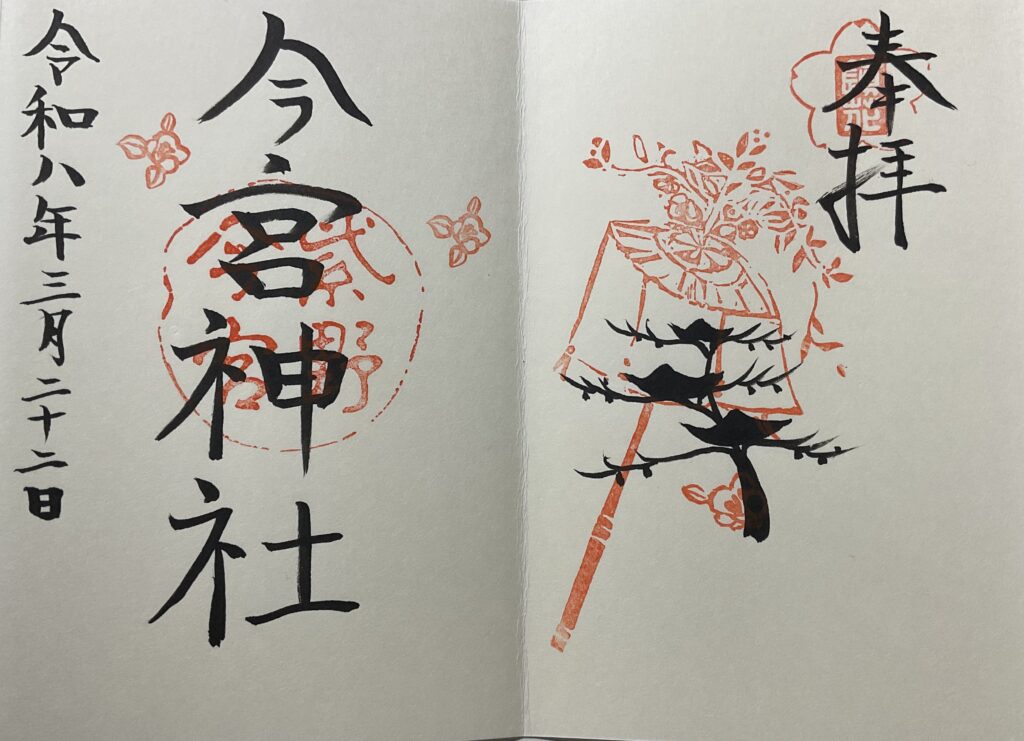 奉拝
今宮神社
令和八年三月二十二日